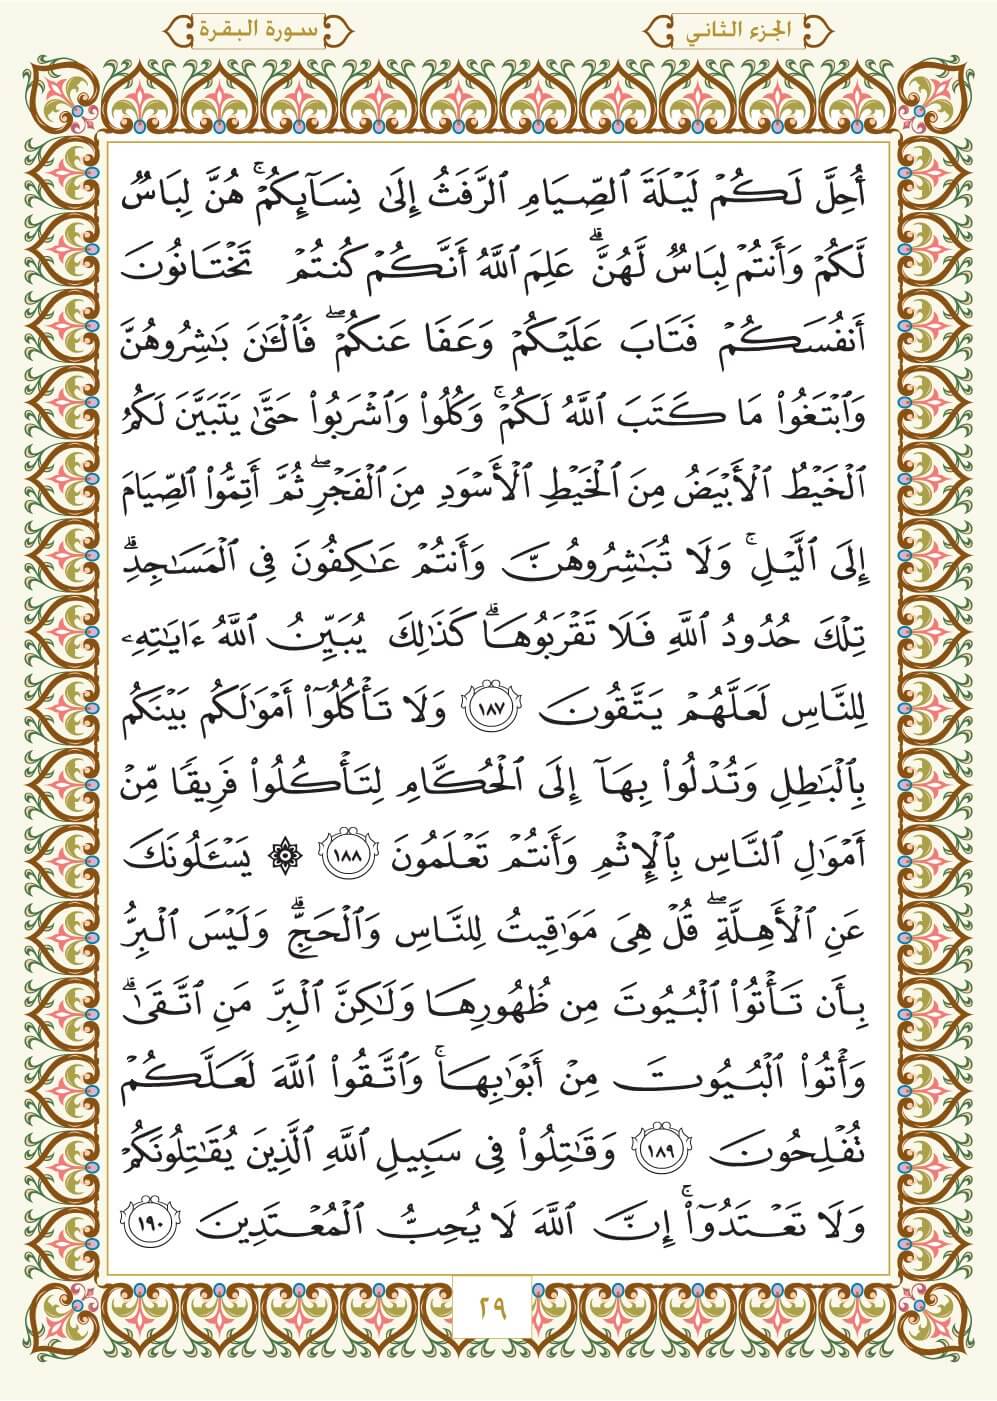 الجزء الثاني
سورة البقرة
أُحِلَّ لَكُمۡ لَيۡلَةَ ٱلصِّيَامِ ٱلرَّفَثُ إِلَىٰ نِسَآئِكُمۡۚ هُنَّ لِبَاسٞ
لَّكُمۡ وَأَنتُمۡ لِبَاسٞ لَّهُنَّۗ عَلِمَ ٱللَّهُ أَنَّكُمۡ كُنتُمۡ تَخۡتَانُونَ
أَنفُسَكُمۡ فَتَابَ عَلَيۡكُمۡ وَعَفَا عَنكُمۡۖ فَٱلۡـَٰٔنَ بَٰشِرُوهُنَّ
وَٱبۡتَغُواْ مَا كَتَبَ ٱللَّهُ لَكُمۡۚ وَكُلُواْ وَٱشۡرَبُواْ حَتَّىٰ يَتَبَيَّنَ لَكُمُ
ٱلۡخَيۡطُ ٱلۡأَبۡيَضُ مِنَ ٱلۡخَيۡطِ ٱلۡأَسۡوَدِ مِنَ ٱلۡفَجۡرِۖ ثُمَّ أَتِمُّواْ ٱلصِّيَامَ
إِلَى ٱلَّيۡلِۚ وَلَا تُبَٰشِرُوهُنَّ وَأَنتُمۡ عَٰكِفُونَ فِي ٱلۡمَسَٰجِدِۗ
تِلۡكَ حُدُودُ ٱللَّهِ فَلَا تَقۡرَبُوهَاۗ كَذَٰلِكَ يُبَيِّنُ ٱللَّهُ ءَايَٰتِهِۦ
لِلنَّاسِ لَعَلَّهُمۡ يَتَّقُونَ ١٨٧ وَلَا تَأۡكُلُوٓاْ أَمۡوَٰلَكُم بَيۡنَكُم
بِٱلۡبَٰطِلِ وَتُدۡلُواْ بِهَآ إِلَى ٱلۡحُكَّامِ لِتَأۡكُلُواْ فَرِيقٗا مِّنۡ
أَمۡوَٰلِ ٱلنَّاسِ بِٱلۡإِثۡمِ وَأَنتُمۡ تَعۡلَمُونَ ١٨٨ ۞ يَسۡـَٔلُونَكَ
عَنِ ٱلۡأَهِلَّةِۖ قُلۡ هِيَ مَوَٰقِيتُ لِلنَّاسِ وَٱلۡحَجِّۗ وَلَيۡسَ ٱلۡبِرُّ
بِأَن تَأۡتُواْ ٱلۡبُيُوتَ مِن ظُهُورِهَا وَلَٰكِنَّ ٱلۡبِرَّ مَنِ ٱتَّقَىٰۗ
وَأۡتُواْ ٱلۡبُيُوتَ مِنۡ أَبۡوَٰبِهَاۚ وَٱتَّقُواْ ٱللَّهَ لَعَلَّكُمۡ
تُفۡلِحُونَ ١٨٩ وَقَٰتِلُواْ فِي سَبِيلِ ٱللَّهِ ٱلَّذِينَ يُقَٰتِلُونَكُمۡ
وَلَا تَعۡتَدُوٓاْۚ إِنَّ ٱللَّهَ لَا يُحِبُّ ٱلۡمُعۡتَدِينَ ١٩٠
٢٩